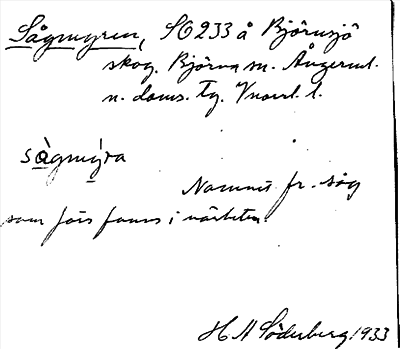 Sågmyren, SO 233 å Björnsjö
skog. Björna sn. Ångerml.
n. doms. Tg. Vnorrl. l.
sågmýra
Namnet fr. såg
som förs fanns i närheten.
H A Söderberg 1933